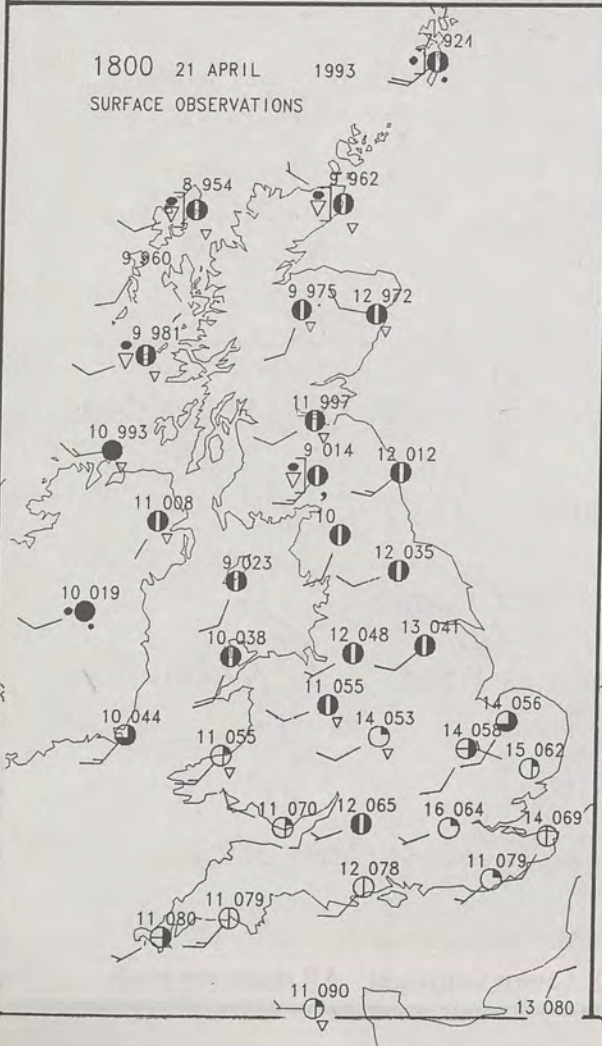 1800 21 APRIL 1993
SURFACE OBSERVATIONS
7 924
8 954
9 962
9 960
9 975
12 972
9 981
11 997
10 993
9 014
12 012
11 008
10
12 035
9 023
10 019
10 038
12 048
13 041
11 055
14 056
10 044
14 053
14 058
11 055
15 062
11 070
12 065
16 064
14 069
12 078
11 079
11 079
11 080
11 090
13 080